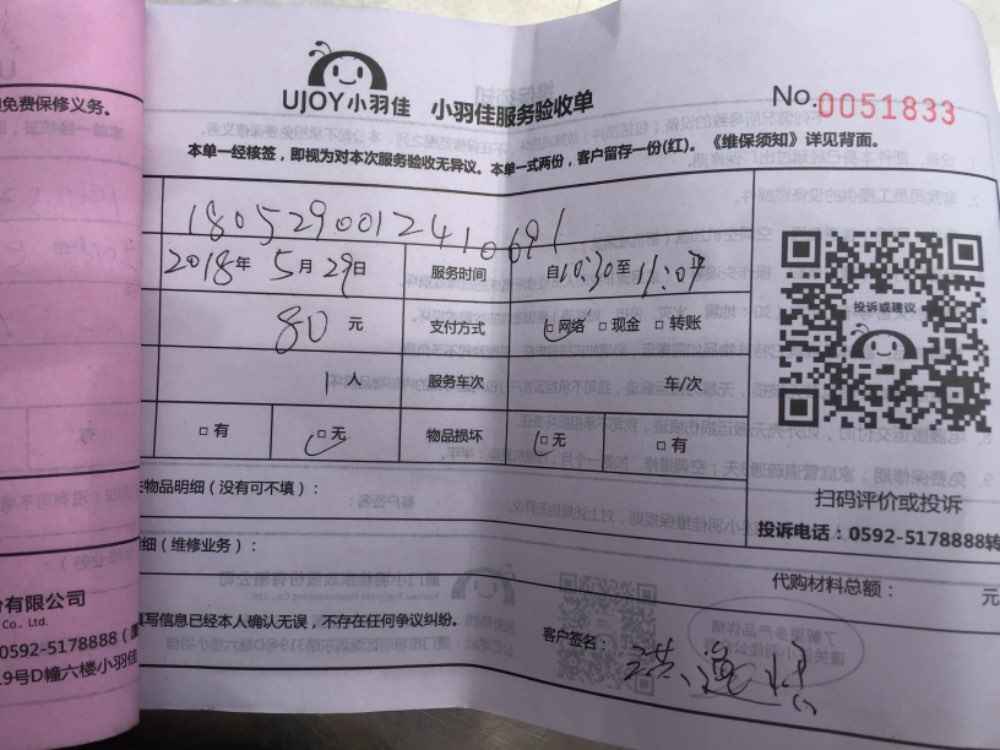 UJOY小羽佳 小羽佳服务验收单
No.0051833
本单一经核签，即视为对本次服务验收无异议。本单一式两份，客户留存一份(红)。《维保须知》详见背面。
免费保修义务。
1805290012410691
2018年5月29日 服务时间 自10:30至11:07
80元 支付方式 网络 现金 转账
1人 服务车次 车/次
有 无 物品损坏 无 有
投诉或建议
扫码评价或投诉
投诉电话：0592-5178888转
物品明细（没有可不填）：
细（维修业务）：
代购材料总额： 元
填写信息已经本人确认无误，不存在任何争议纠纷。
客户签名：
有限公司
Co., Ltd.
0592-5178888
19号D幢六楼小羽佳